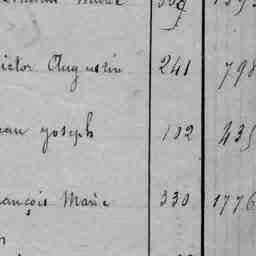 ictor Augustin 241 798
ean joseph 102 435
rançois Marie 330 1776